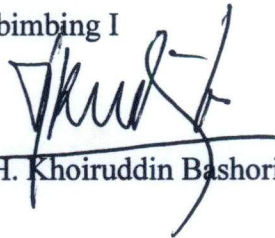 bimbing I
H. Khoiruddin Bashori